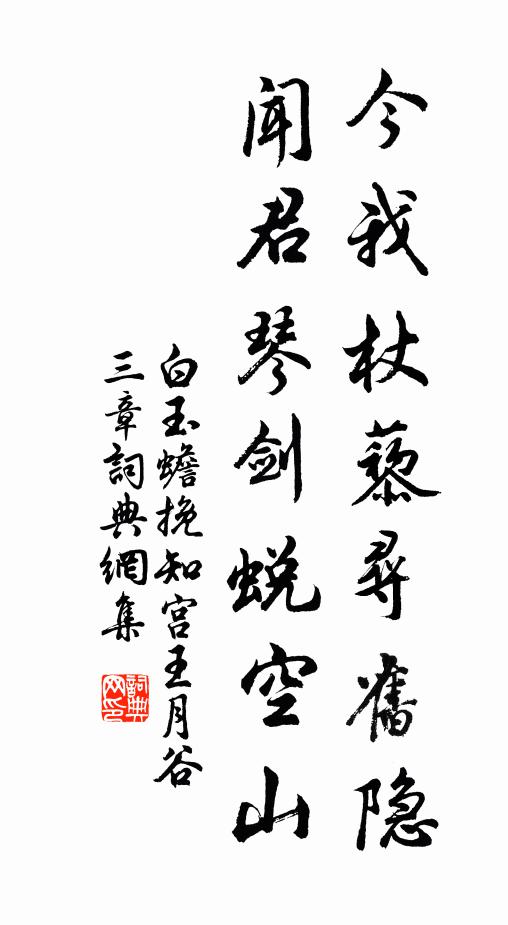 今我杖藜尋舊隐
闻君琴剑蜕空山
白玉蟾挽知宫王月谷
三章詞典網集
詞典网印